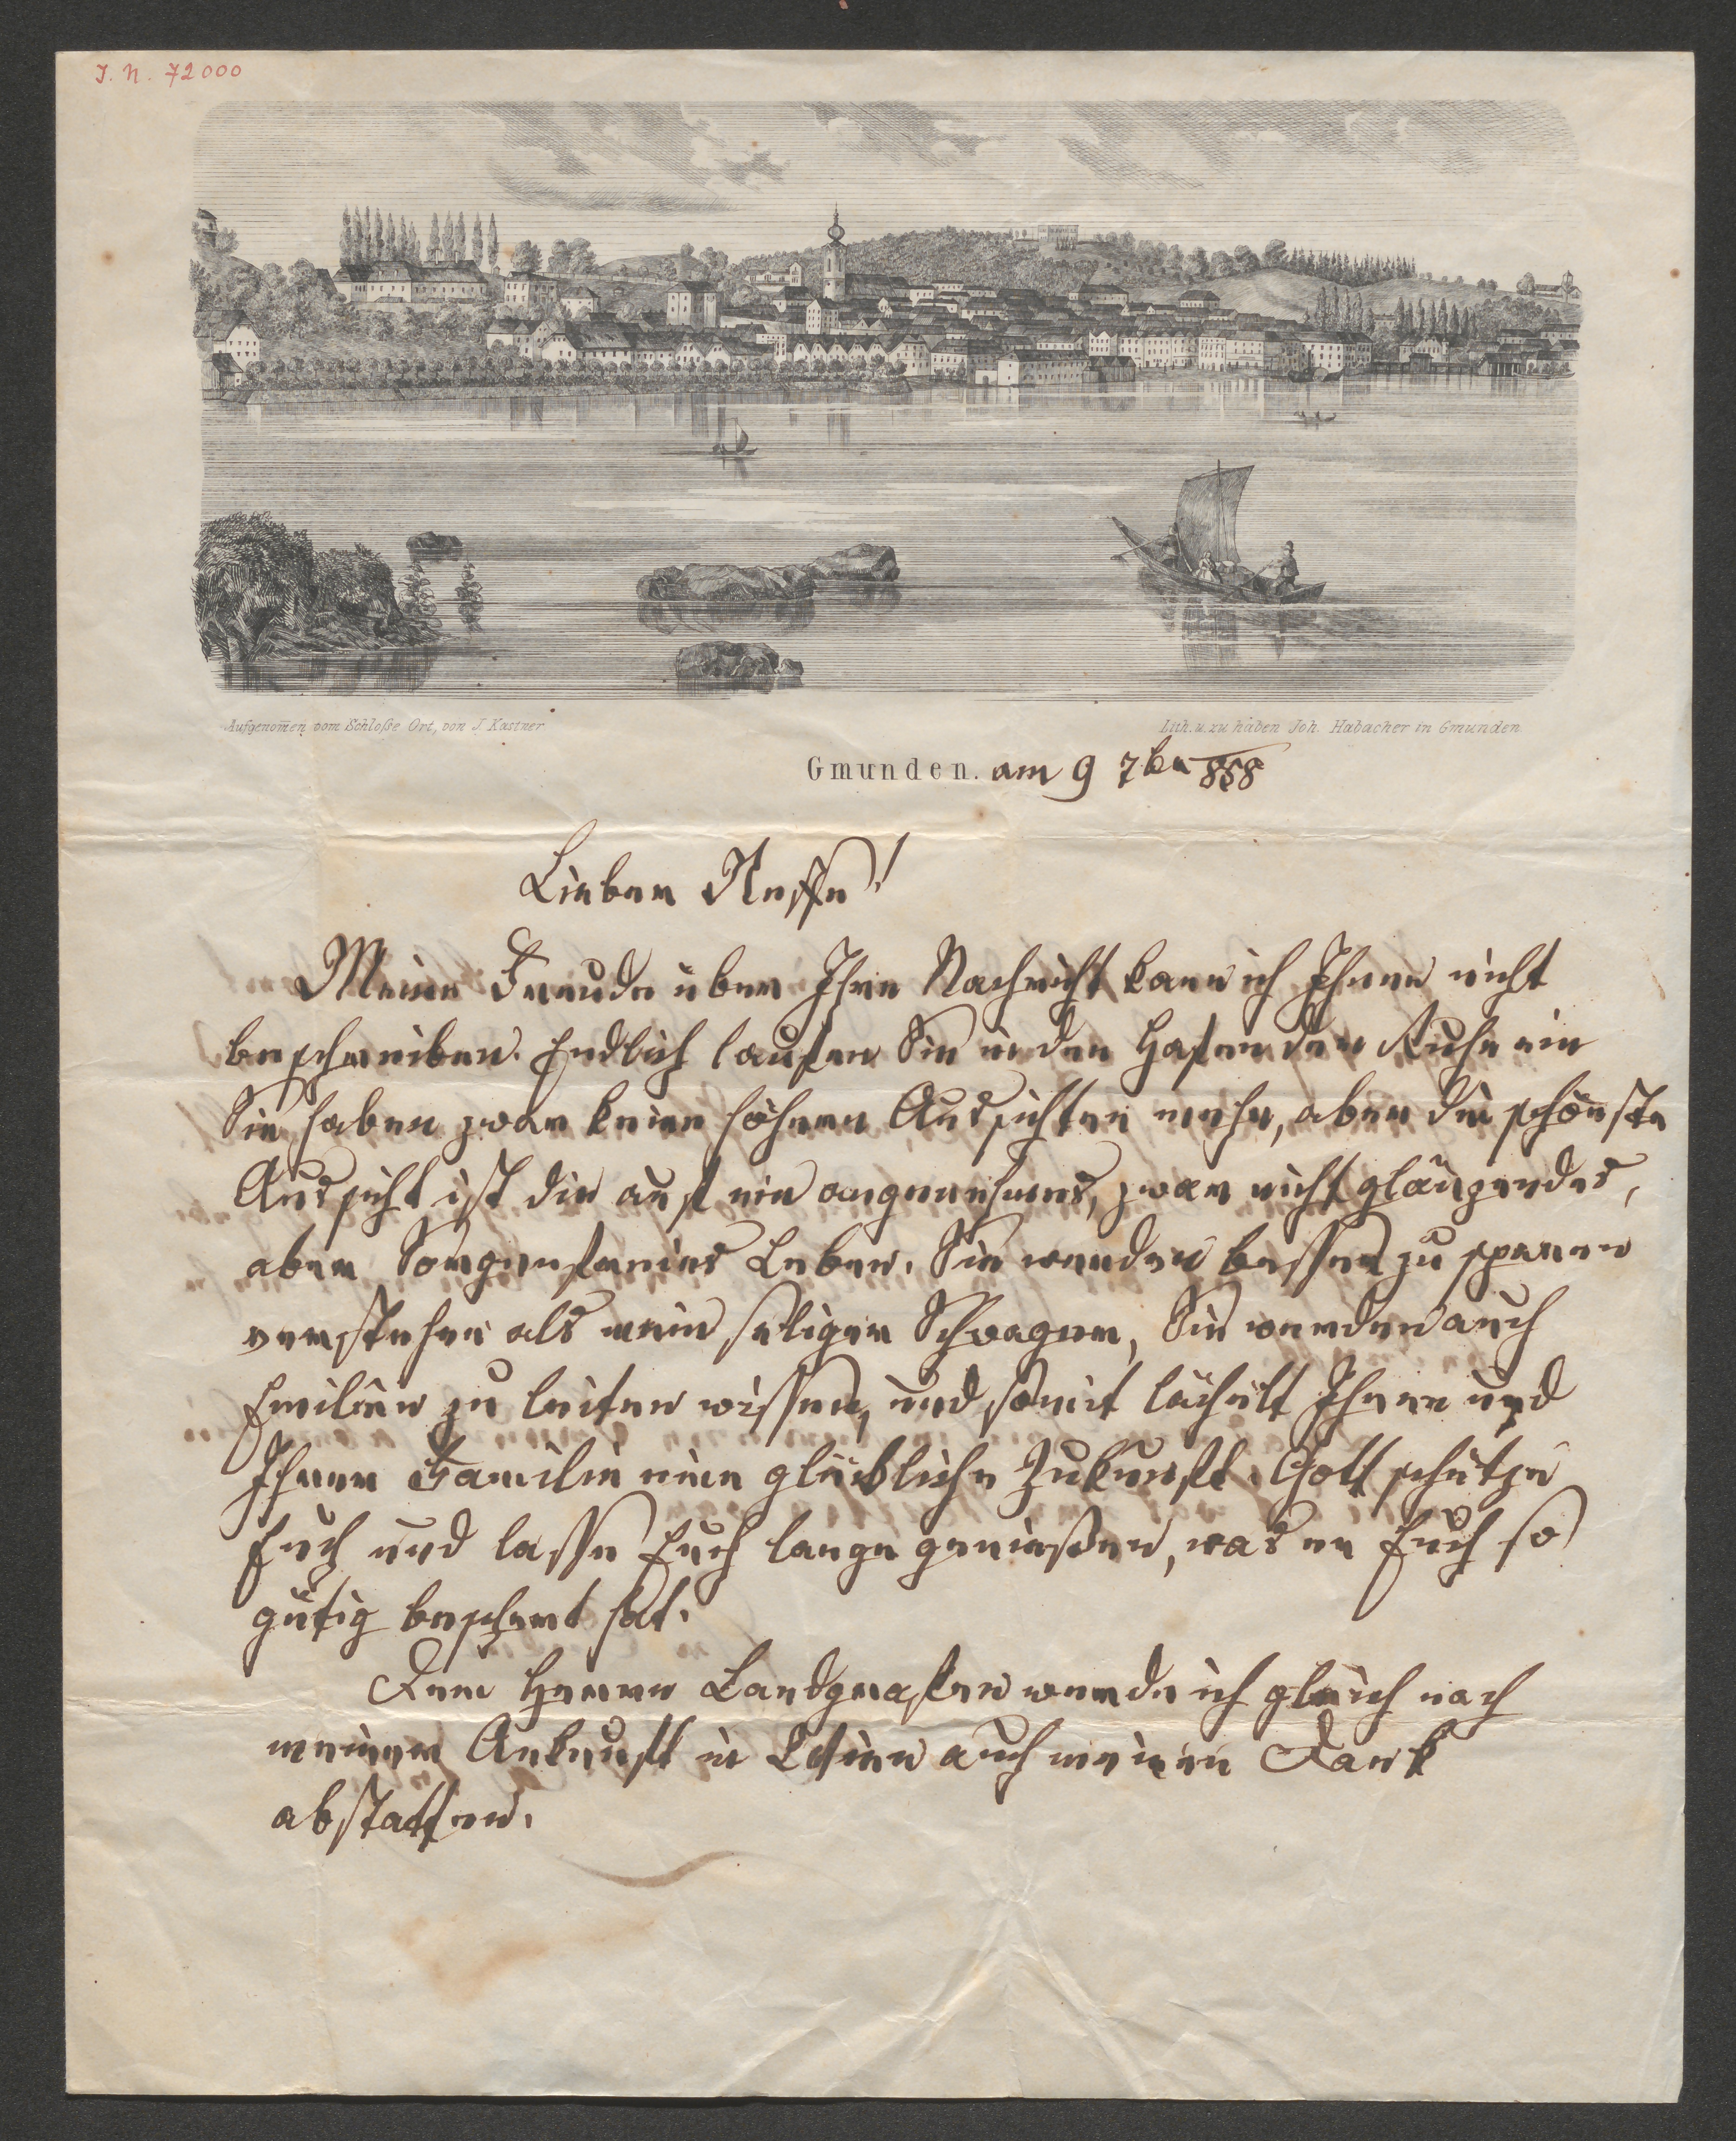 J. N. 72000
Aufgenom̄en vom Schloße Ort, von J. Kastner
Lith. u. zu haben Joh. Habacher in Gmunden
Gmunden. am 9 7br 858
Lieber Neffe!
Meine Freude über Ihre Nachricht kann ich Ihnen nicht
beschreiben. Endlich laufen Sie in den Hafen der Ruhe ein
Sie haben zwar keine höhern Aussichten mehr, aber die schönste
Aussicht ist die auf ein angenehmes, zwar nicht glänzendes,
aber Sorgenfreies Leben. Sie werden besser zu sparen
verstehen als mein seliger Schwager, Sie werden auch
Emilien zu leiten wissen, und somit lächelt Ihnen und
Ihrer Familie eine glückliche Zukunft. Gott schütze
Euch und lasse Euch lange genießen, was er Euch so
gütig beschert hat.
Dem Herrn Landgrafen werde ich gleich nach
meiner Ankunft in Wien auch meinen Dank
abstatten.